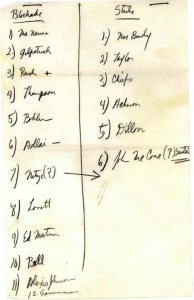 Blockade
1) Mc Namara
2) Gilpatrick
3) Rusk +
4) Thompson
5) Bohlen
6) Adlai -
7) Nitze (?)
8) Lovett
9) Ed Martin
10) Ball
11) Alexis Johnson
12 Sorensen
Strike
1) Mac Bundy
2) Taylor
3) Chiefs
4) Acheson
5) Dillon
6) John Mc Cone (?)